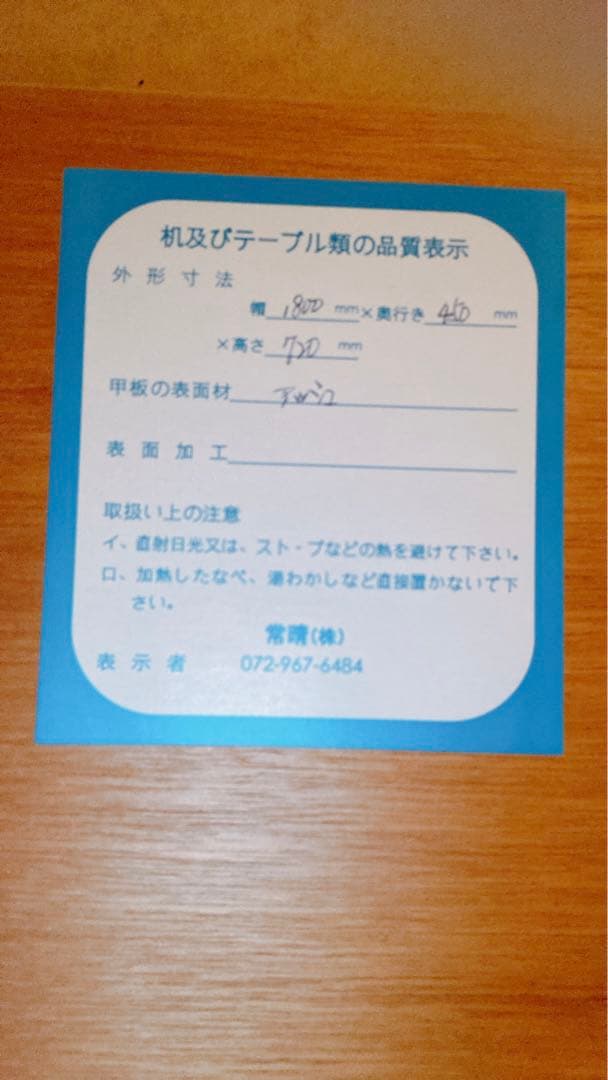 机及びテーブル類の品質表示
外形寸法
幅 1,800 mm×奥行き 450 mm
×高さ 720 mm
甲板の表面材
表面加工
取扱い上の注意
イ、直射日光又は、スト-ブなどの熱を避けて下さい。
口、加熱したなべ、湯わかしなど直接置かないで下
さい。
常晴(株)
表示者 072-967-6484